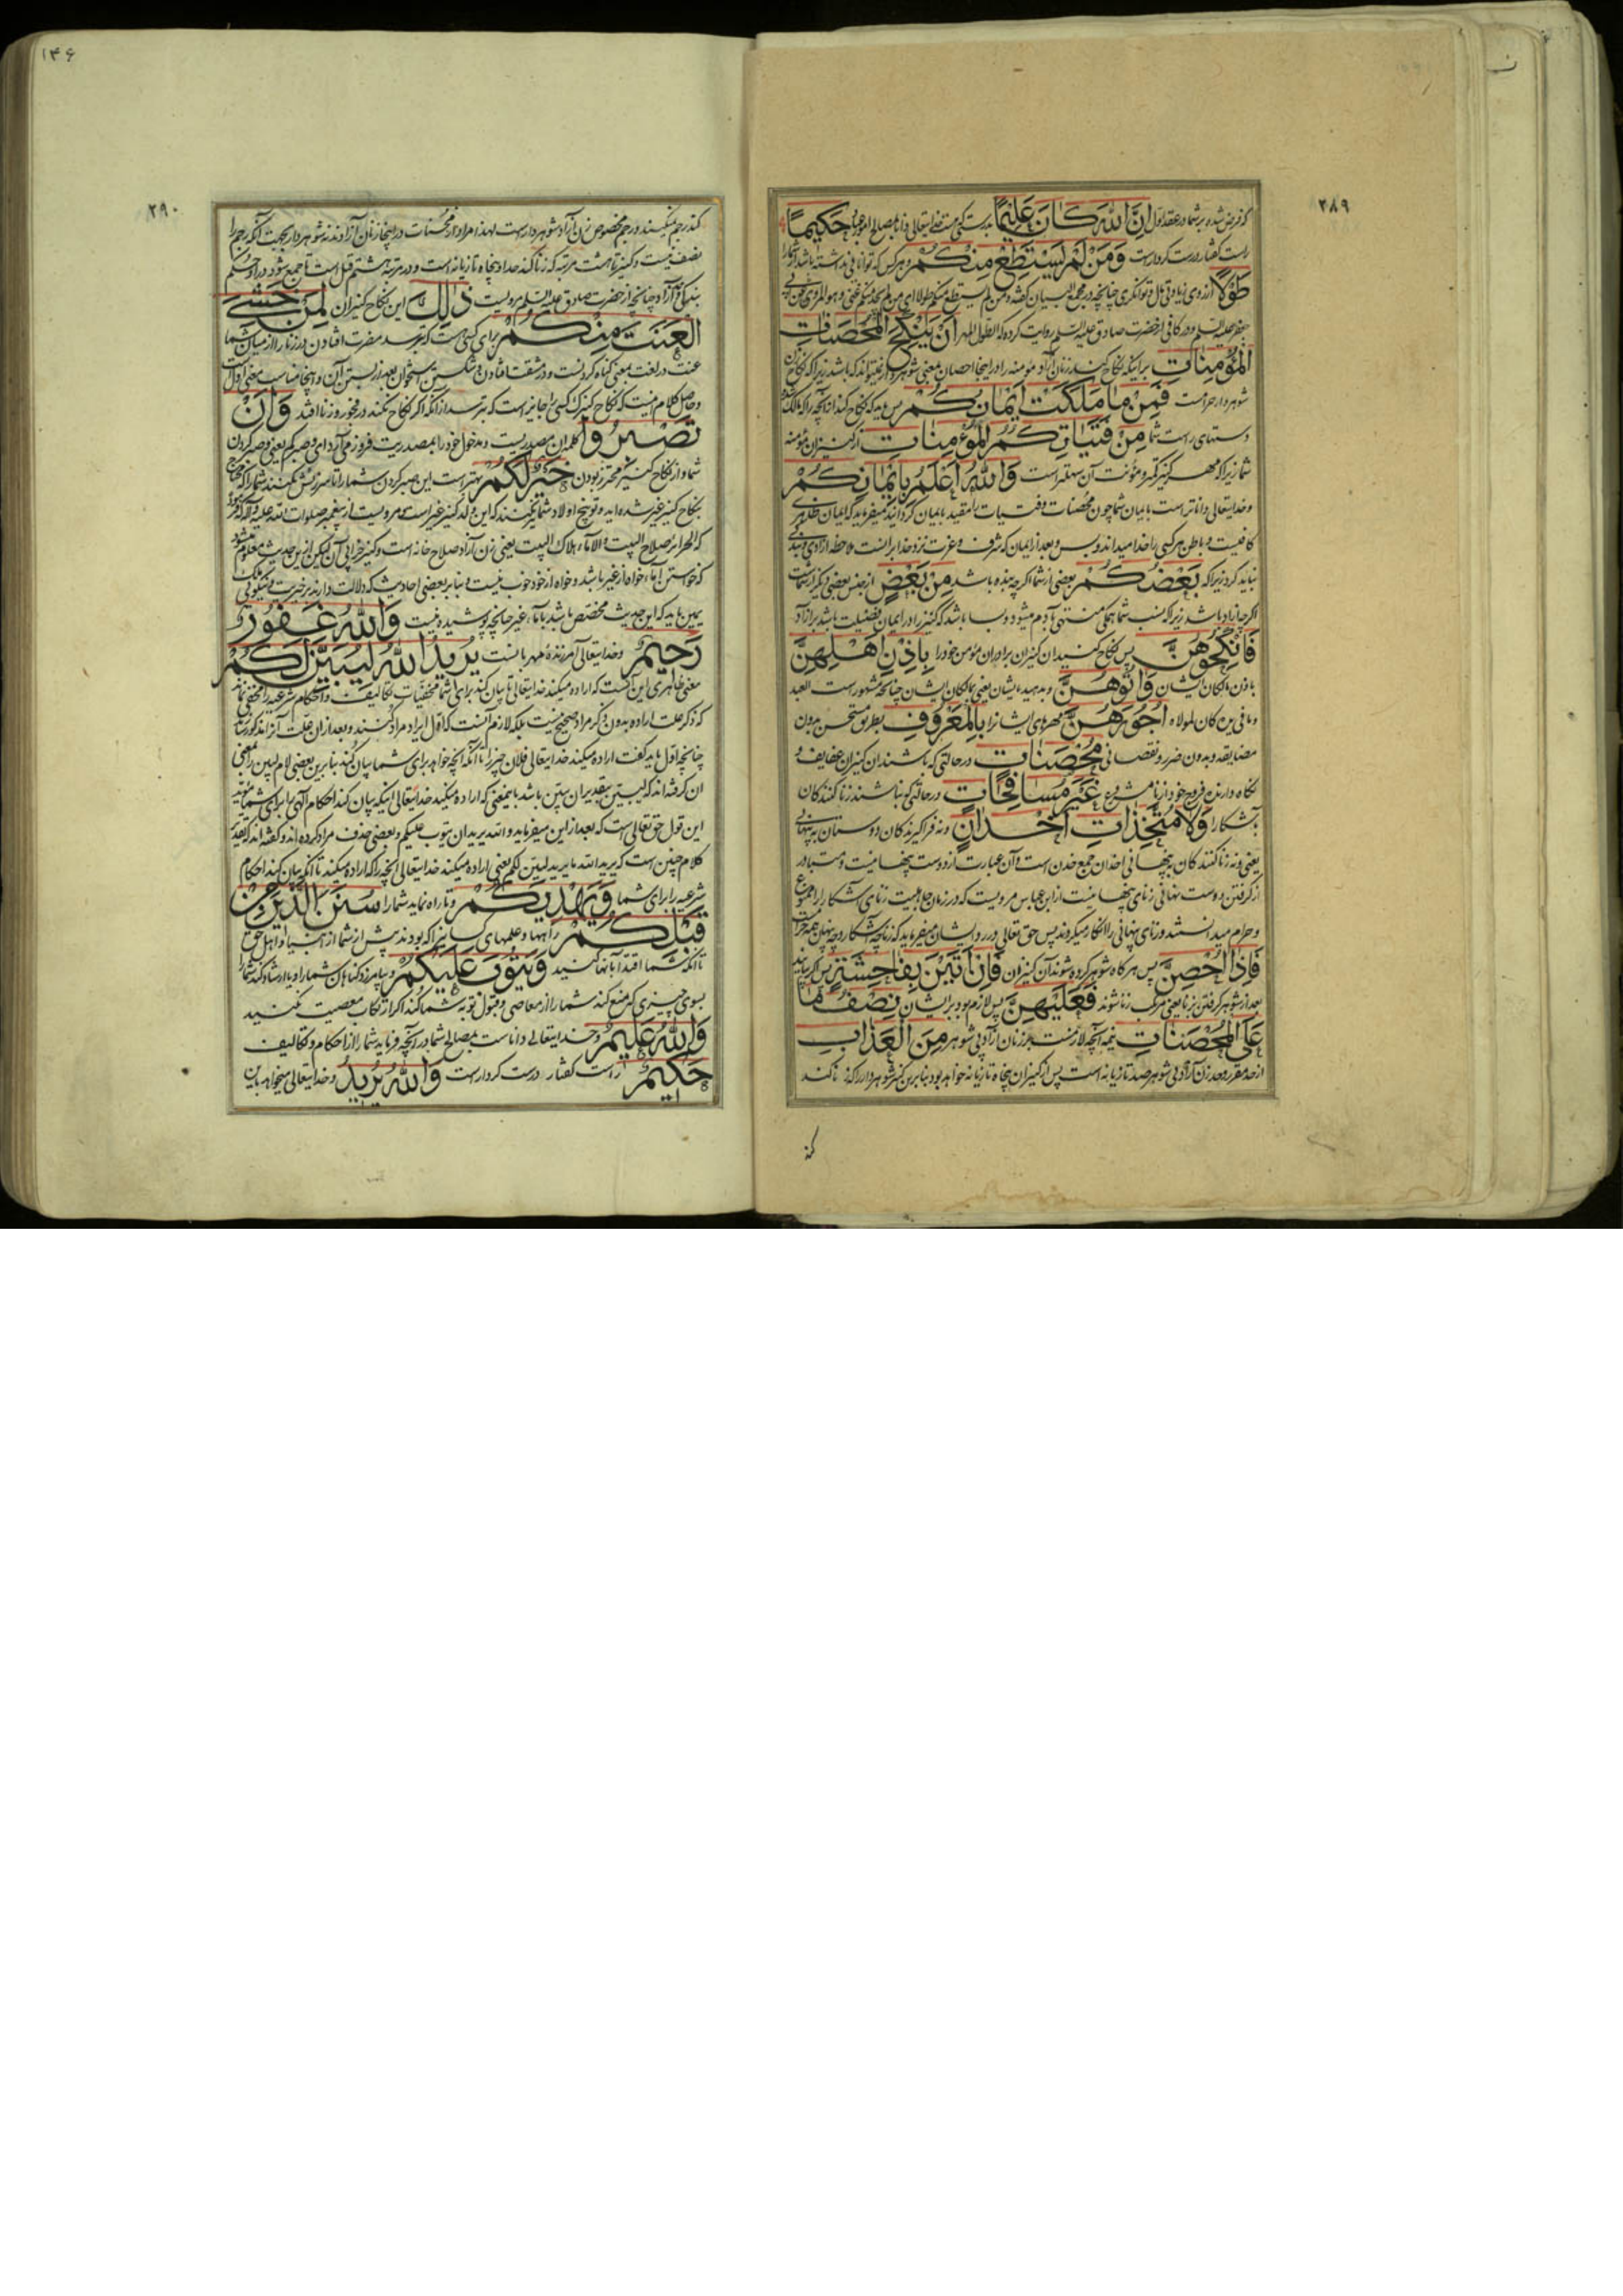 ۲۸۹
که فرض شده بر شما در عقد اول اِنَّ اللّٰهَ کَانَ عَلِیمًا بدرستی که هست خدایتعالی دانا بمصالح امور عباد حَکِیمًا
راست گفتار درست کردار است وَمَنْ لَمْ یَسْتَطِعْ مِنْکُمْ و هر کس که توانائی نداشته باشد از شما
طَوْلًا از روی زیادتی مال و توانگری چنانچه در مجمع البیان گفته و من لم یستطع منکم طولا ای من لم یجد منکم غنی و هو المروی عن ابی
جعفر علیه السلم و در کافی از حضرت صادق علیه السلم روایت کرده که الطول المهر اَنْ یَنْکِحَ الْمُحْصَنَاتِ
الْمُؤْمِنَاتِ برای اینکه نکاح کند زنان آزاد مؤمنه را و در اینجا احصان بمعنی شوهر دار نمیتواند که باشد زیرا که نکاح زن
شوهر دار حرامست فَمِنْ مَا مَلَکَتْ اَیْمَانُکُمْ پس باید که نکاح کند از آنچه را که مالک شده
دستهای راست شما مِنْ فَتَیَاتِکُمُ الْمُؤْمِنَاتِ از کنیزان مؤمنه
شما زیرا که مهر کنیز کمتر و مؤنت آن سهلتر است وَاللّٰهُ اَعْلَمُ بِاِیْمَانِکُمْ
و خدایتعالی داناتر است بایمان شما چون محصنات و فتیات را مقید بایمان گردانید میفرماید که ایمان ظاهری
کافیست و باطن هر کسی را خدا میداند و بس و بعد از ایمان که شرف و عزت نزد خدا بر آنست ملاحظه آزادی و بندگی
نباید کرد زیرا که بَعْضُکُمْ بعضی از شما اگر چه بنده باشد مِنْ بَعْضٍ از جنس بعضی دیگر از شماست
اگر چه آزاد باشد زیرا که نسب شما همگی منتهی بآدم میشود و بسا باشد که کنیز را در ایمان فضیلت باشد بر آزاد
فَانْکِحُوهُنَّ پس نکاح کنید آن کنیزان برادران مؤمن خود را بِاِذْنِ اَهْلِهِنَّ
باذن مالکان ایشان وَاٰتُوهُنَّ و بدهید بایشان یعنی بمالکان ایشان چنانکه مشهور است العبد
و ما فی یده کان لمولاه اُجُورَهُنَّ مهرهای ایشانرا بِالْمَعْرُوفِ بطریق مستحسن بدون
مضایقه و بدون ضرر و نقصانی مُحْصَنَاتٍ در حالتی که باشند آن کنیزان عفایف و
نگاه دارنده فروج خود از نامشروع غَیْرَ مُسَافِحَاتٍ در حالتی که نباشند زنا کنندگان
بآشکارا وَلَا مُتَّخِذَاتِ اَخْدَانٍ و نه فراگیرندگان دوستان به پنهانی
یعنی و نه زنا کنندگان به پنهانی اخدان جمع خدن است و آن عبارت از دوست پنهانیست و متبادر
از گرفتن دوست پنهانی زنای پنهانیست از ابن عباس مرویست که در زمان جاهلیت زنای آشکارا را ممنوع
و حرام میدانستند و زنای پنهانی را انکار نمیکردند پس حق تعالی در رد ایشان میفرماید که زنا چه آشکار و چه پنهان همه حرامست
فَاِذَا اُحْصِنَّ پس هر گاه شوهر کرده شوند آن کنیزان فَاِنْ اَتَیْنَ بِفَاحِشَةٍ پس اگر بیایند
بعد از شوهر گرفتن بزنا یعنی مرتکب زنا شوند فَعَلَیْهِنَّ پس لازم بود بر ایشان نِصْفُ مَا
عَلَی الْمُحْصَنَاتِ نیمه آنچه لازمست بر زنان آزاد بی شوهر مِنَ الْعَذَابِ
از حد مقرر و حد زن آزاد بی شوهر صد تازیانه است پس از کنیزان پنجاه تازیانه خواهد بود بنابرین کنیز شوهر دار را که زنا کند
۱۴۶
۲۹۰
کند رجم نمیکنند و رجم مخصوص زن آزاد شوهر دار است لهذا مراد از محصنات در اینجا زنان آزادند نه شوهر دار بجهت آنکه رجم را
نصف نیست و کنیز تا هشت مرتبه که زنا کند حد او پنجاه تازیانه است و در مرتبه هشتم قتل است تا جمع شود در او حکم
بندگی و آزاد چنانچه از حضرت صادق علیه السلم مرویست ذٰلِکَ این نکاح کنیزان لِمَنْ خَشِیَ
الْعَنَتَ مِنْکُمْ برای کسی است که بترسد مضرت افتادن در زنا را از میان شما
عنت در لغت بمعنی گناه کردنست و در مشقت افتادن و شکستن استخوان بعد از بستن آن و اینجا مناسب معنی اولست
و حاصل کلام اینست که نکاح کنیزک کسی را جایز است که بترسد از آنکه اگر نکاح نکند در فجور و زنا افتد وَاَنْ
تَصْبِرُوا کلمه ان مصدریست و مدخول خود را بمصدریت فرو زمی آرد ای و صبرکم یعنی و صبر کردن
شما و از نکاح کنیز محترز بودن خَیْرٌ لَکُمْ بهتر است این صبر کردن شما را تا سرزنش نکنند شما را که محتاج
بنکاح کنیز غیر شده اید و توبیخ اولاد شما نکنند که این ولد کنیز غیر است و مرویست از پیغمبر صلوات الله علیه و آله که فرمود
که الحرائر صلاح البیت و الاماء هلاک البیت یعنی زن آزاد صلاح خانه است و کنیز خرابی آن لیکن از این حدیث معلوم میشود
که خواستن اماء خواه از غیر باشد و خواه از خود خوب نیست و بنابر بعضی احادیث که دلالت دارند بر خیریت و نیکوئی ملک
یمین باید که این حدیث مختص باشد باماء غیر چنانچه پوشیده نیست وَاللّٰهُ غَفُورٌ
رَحِیمٌ و خدایتعالی آمرزنده مهربانست یُرِیدُ اللّٰهُ لِیُبَیِّنَ لَکُمْ
معنی ظاهری این آنست که اراده میکند خدایتعالی تا بیان کند برای شما مخفیات تکالیف و احکام شرعیه را مخفی نماند
که ذکر علت اراده بدون ذکر مراد صحیح نیست بلکه لازم آنست که اول ایراد مراد کنند و بعد از آن علت آنرا مذکور سازند
چنانچه اول باید گفت اراده میکند خدایتعالی فلان چیز را تا آنکه آنچه خواهد برای شما بیان کند بنابرین بعضی لام لیبین را بمعنی
ان گرفته اند که لیبین بتقدیر ان یبین باشد باینمعنی که اراده میکند خدایتعالی اینکه بیان کند احکام آلهی را برای شما مؤید
این قول حق تعالی است که بعد از این میفرماید و الله یرید ان یتوب علیکم و بعضی حذف مراد کرده اند و گفته اند که تقدیر
کلام چنین است که یرید الله ما یرید لیبین لکم یعنی اراده میکند خدایتعالی آنچه را که اراده میکند تا آنکه بیان کند احکام
شرعیه را برای شما وَیَهْدِیَکُمْ و تا راه نماید شما را سُنَنَ الَّذِیْنَ مِنْ
قَبْلِکُمْ راهها و علمهای کسانیرا که بودند پیش از شما از انبیا و اهل حق
تا آنکه شما اقتدا بآنها کنید وَیَتُوبَ عَلَیْکُمْ و بیامرزد گناهان شما را و یا ارشاد کند شما را
بسوی چیزی که منع کند شما را از معاصی و قبول توبه شما کند اگر ارتکاب معصیت کنید
وَاللّٰهُ عَلِیمٌ و خدایتعالی داناست بمصالح شما در آنچه فرماید شما را از احکام و تکالیف
حَکِیمٌ راست گفتار درست کردار است وَاللّٰهُ یُرِیدُ و خدایتعالی میخواهد باین